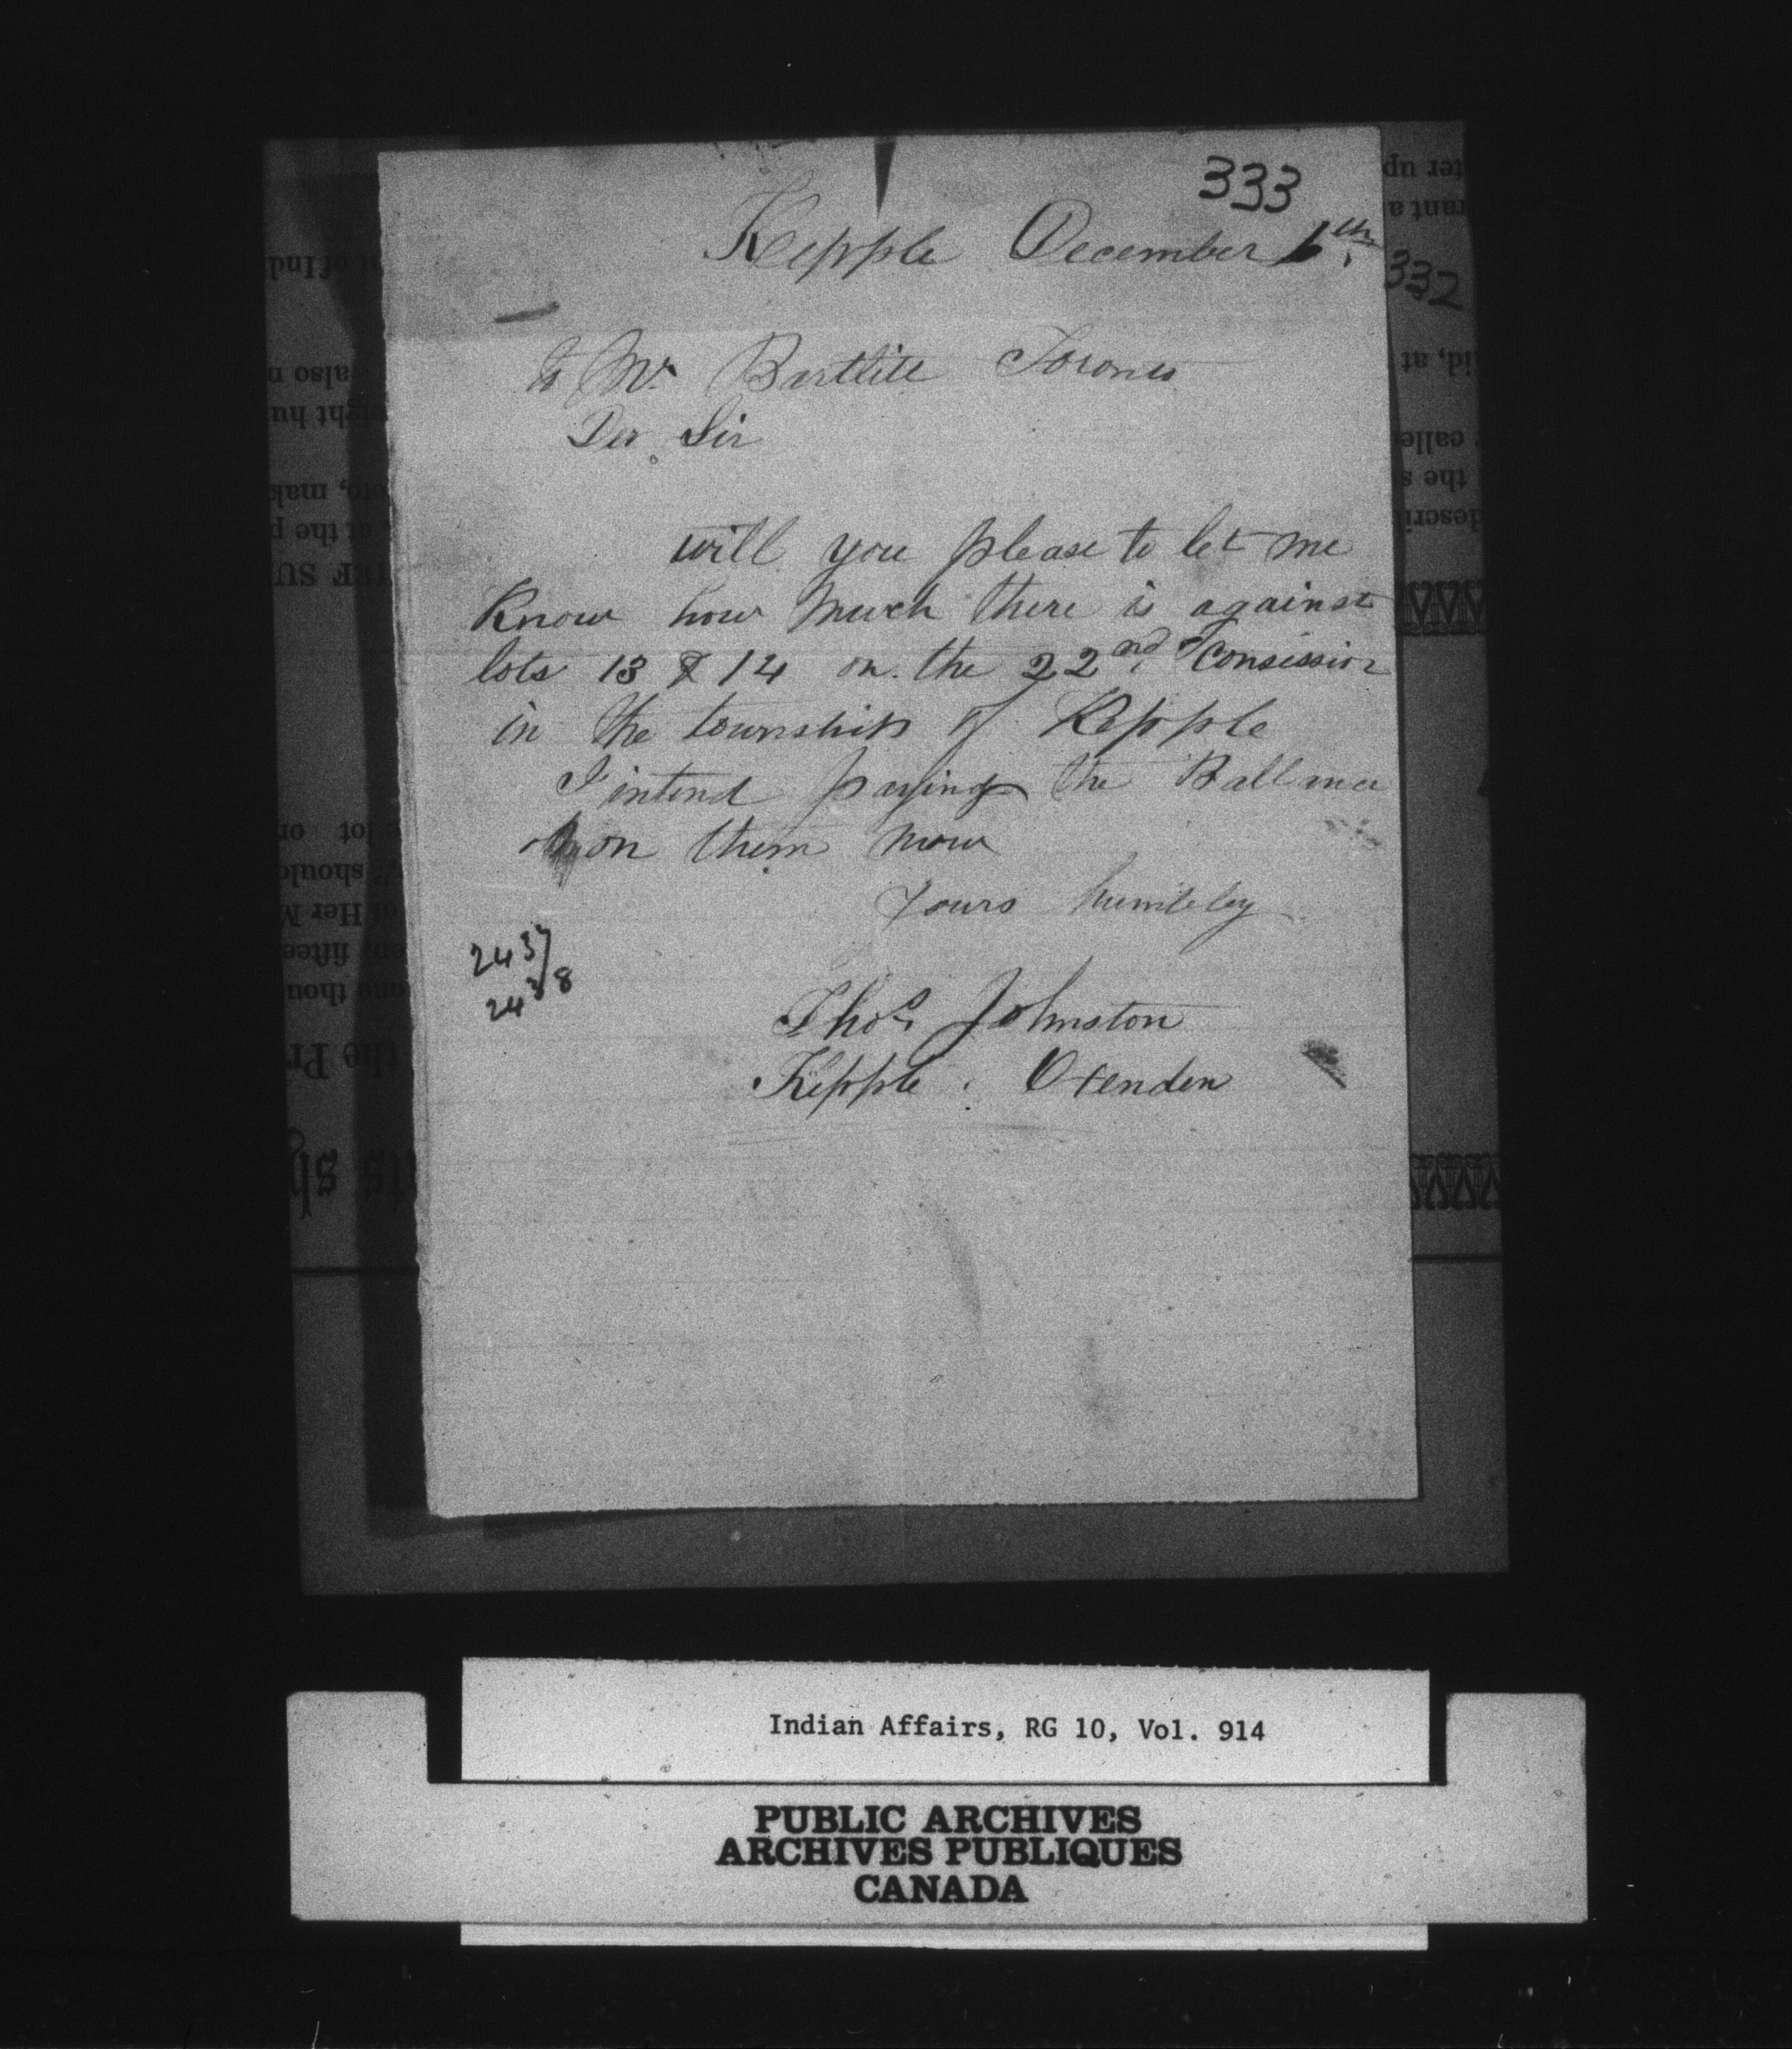 333
Kepple December 6th.
332
to Mr Bartlitt Toronto
Der Sir
will you please to let me
Know how Much there is against
lots 13 & 14 on the 22nd Consission
in the township of Kepple
I intend paying the Ballance
on them now
Yours humbley
2437/
2438
Thos Johnston
Kepple . Oxenden
Indian Affairs, RG 10, Vol. 914
PUBLIC ARCHIVES
ARCHIVES PUBLIQUES
CANADA